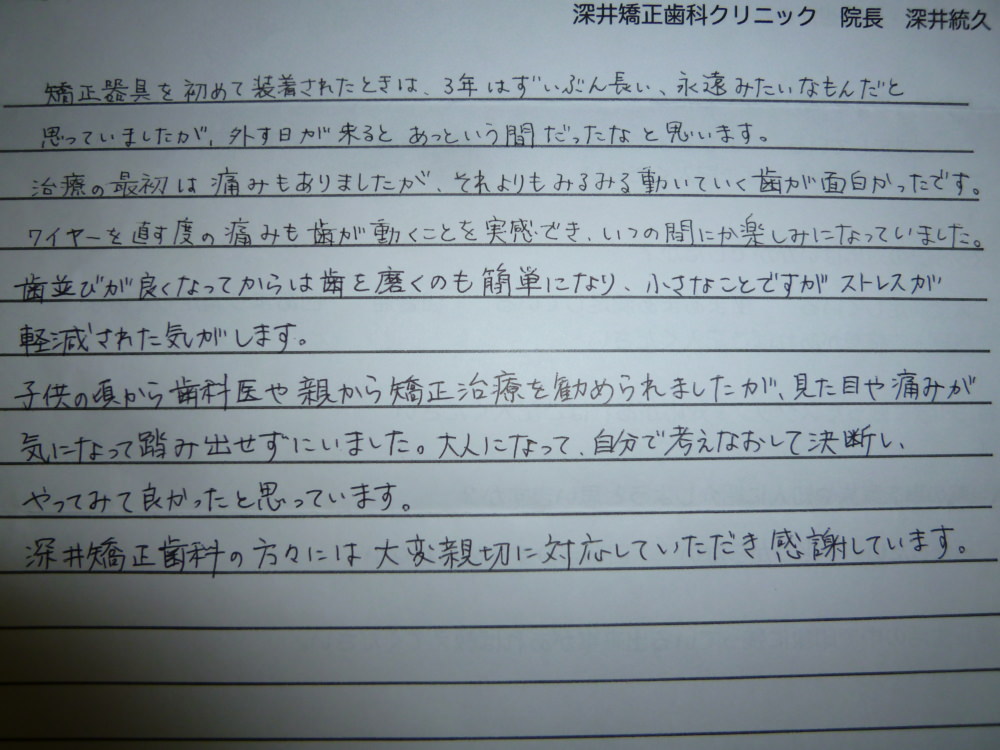 深井矯正歯科クリニック　院長　深井統久
矯正器具を初めて装着されたときは、3年はずいぶん長い、永遠みたいなもんだと
思っていましたが、外す日が来るとあっという間だったなと思います。
治療の最初は痛みもありましたが、それよりもみるみる動いていく歯が面白かったです。
ワイヤーを直す度の痛みも歯が動くことを実感でき、いつの間にか楽しみになっていました。
歯並びが良くなってからは歯を磨くのも簡単になり、小さなことですがストレスが
軽減された気がします。
子供の頃から歯科医や親から矯正治療を勧められましたが、見た目や痛みが
気になって踏み出せずにいました。大人になって、自分で考えなおして決断し、
やってみて良かったと思っています。
深井矯正歯科の方々には大変親切に対応していただき感謝しています。